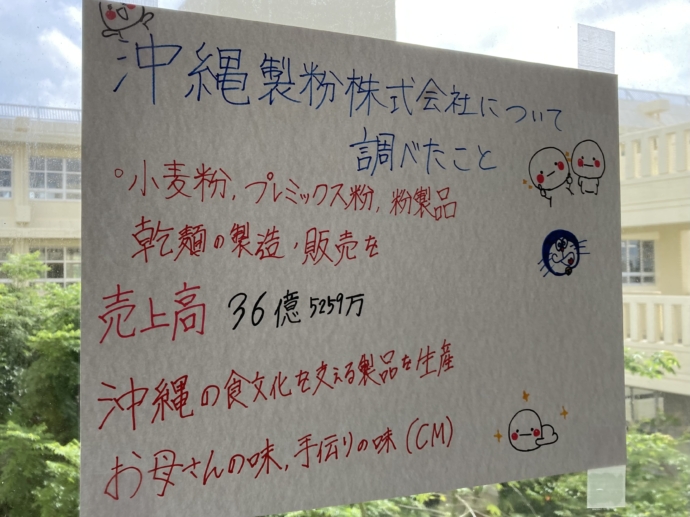 沖縄製粉株式会社について
調べたこと
°小麦粉,プレミックス粉,粉製品
乾麺の製造・販売を
売上高 36億5259万
沖縄の食文化を支える製品を生産
お母さんの味,手伝りの味(CM)